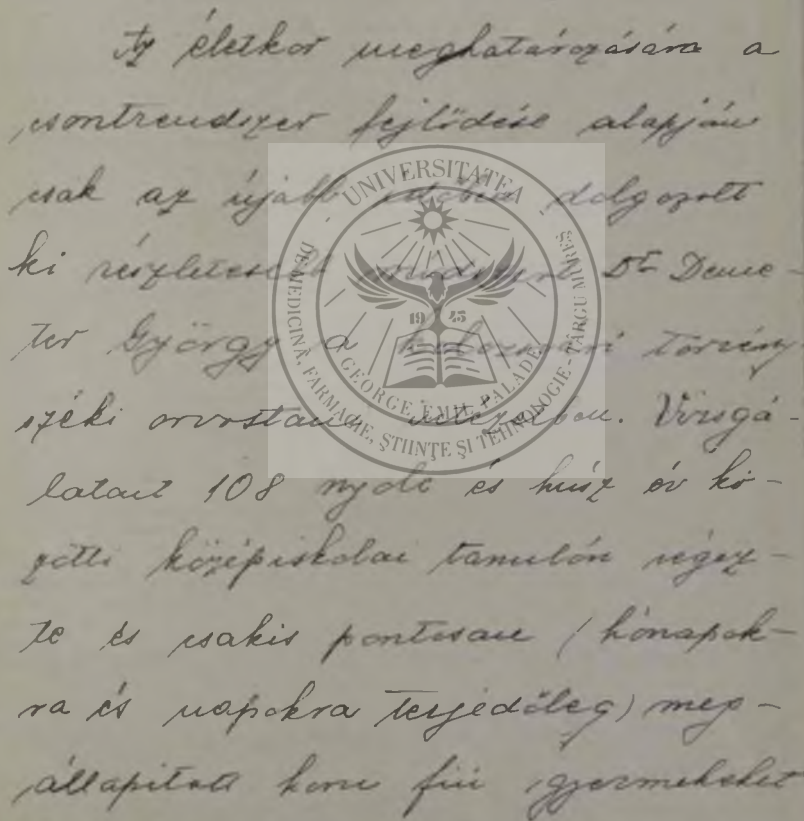 Az életkor meghatározására a
csontrendszer fejlődése alapján
csak az újabb időben dolgozott
ki részletesebb módszert Dr Deme-
ter György a kolozsvári törvény-
széki orvostani intézetben. Vizsgá-
latait 108 nyolc és húsz év kö-
zötti középiskolai tanulón végez-
te és csakis pontosan (hónapok-
ra és napokra terjedőleg) meg-
állapított korú fiú gyermekeket
UNIVERSITATEA
DE MEDICINĂ, FARMACIE, ȘTIINȚE ȘI TEHNOLOGIE - TÂRGU MUREȘ
GEORGE EMIL PALADE
19 45